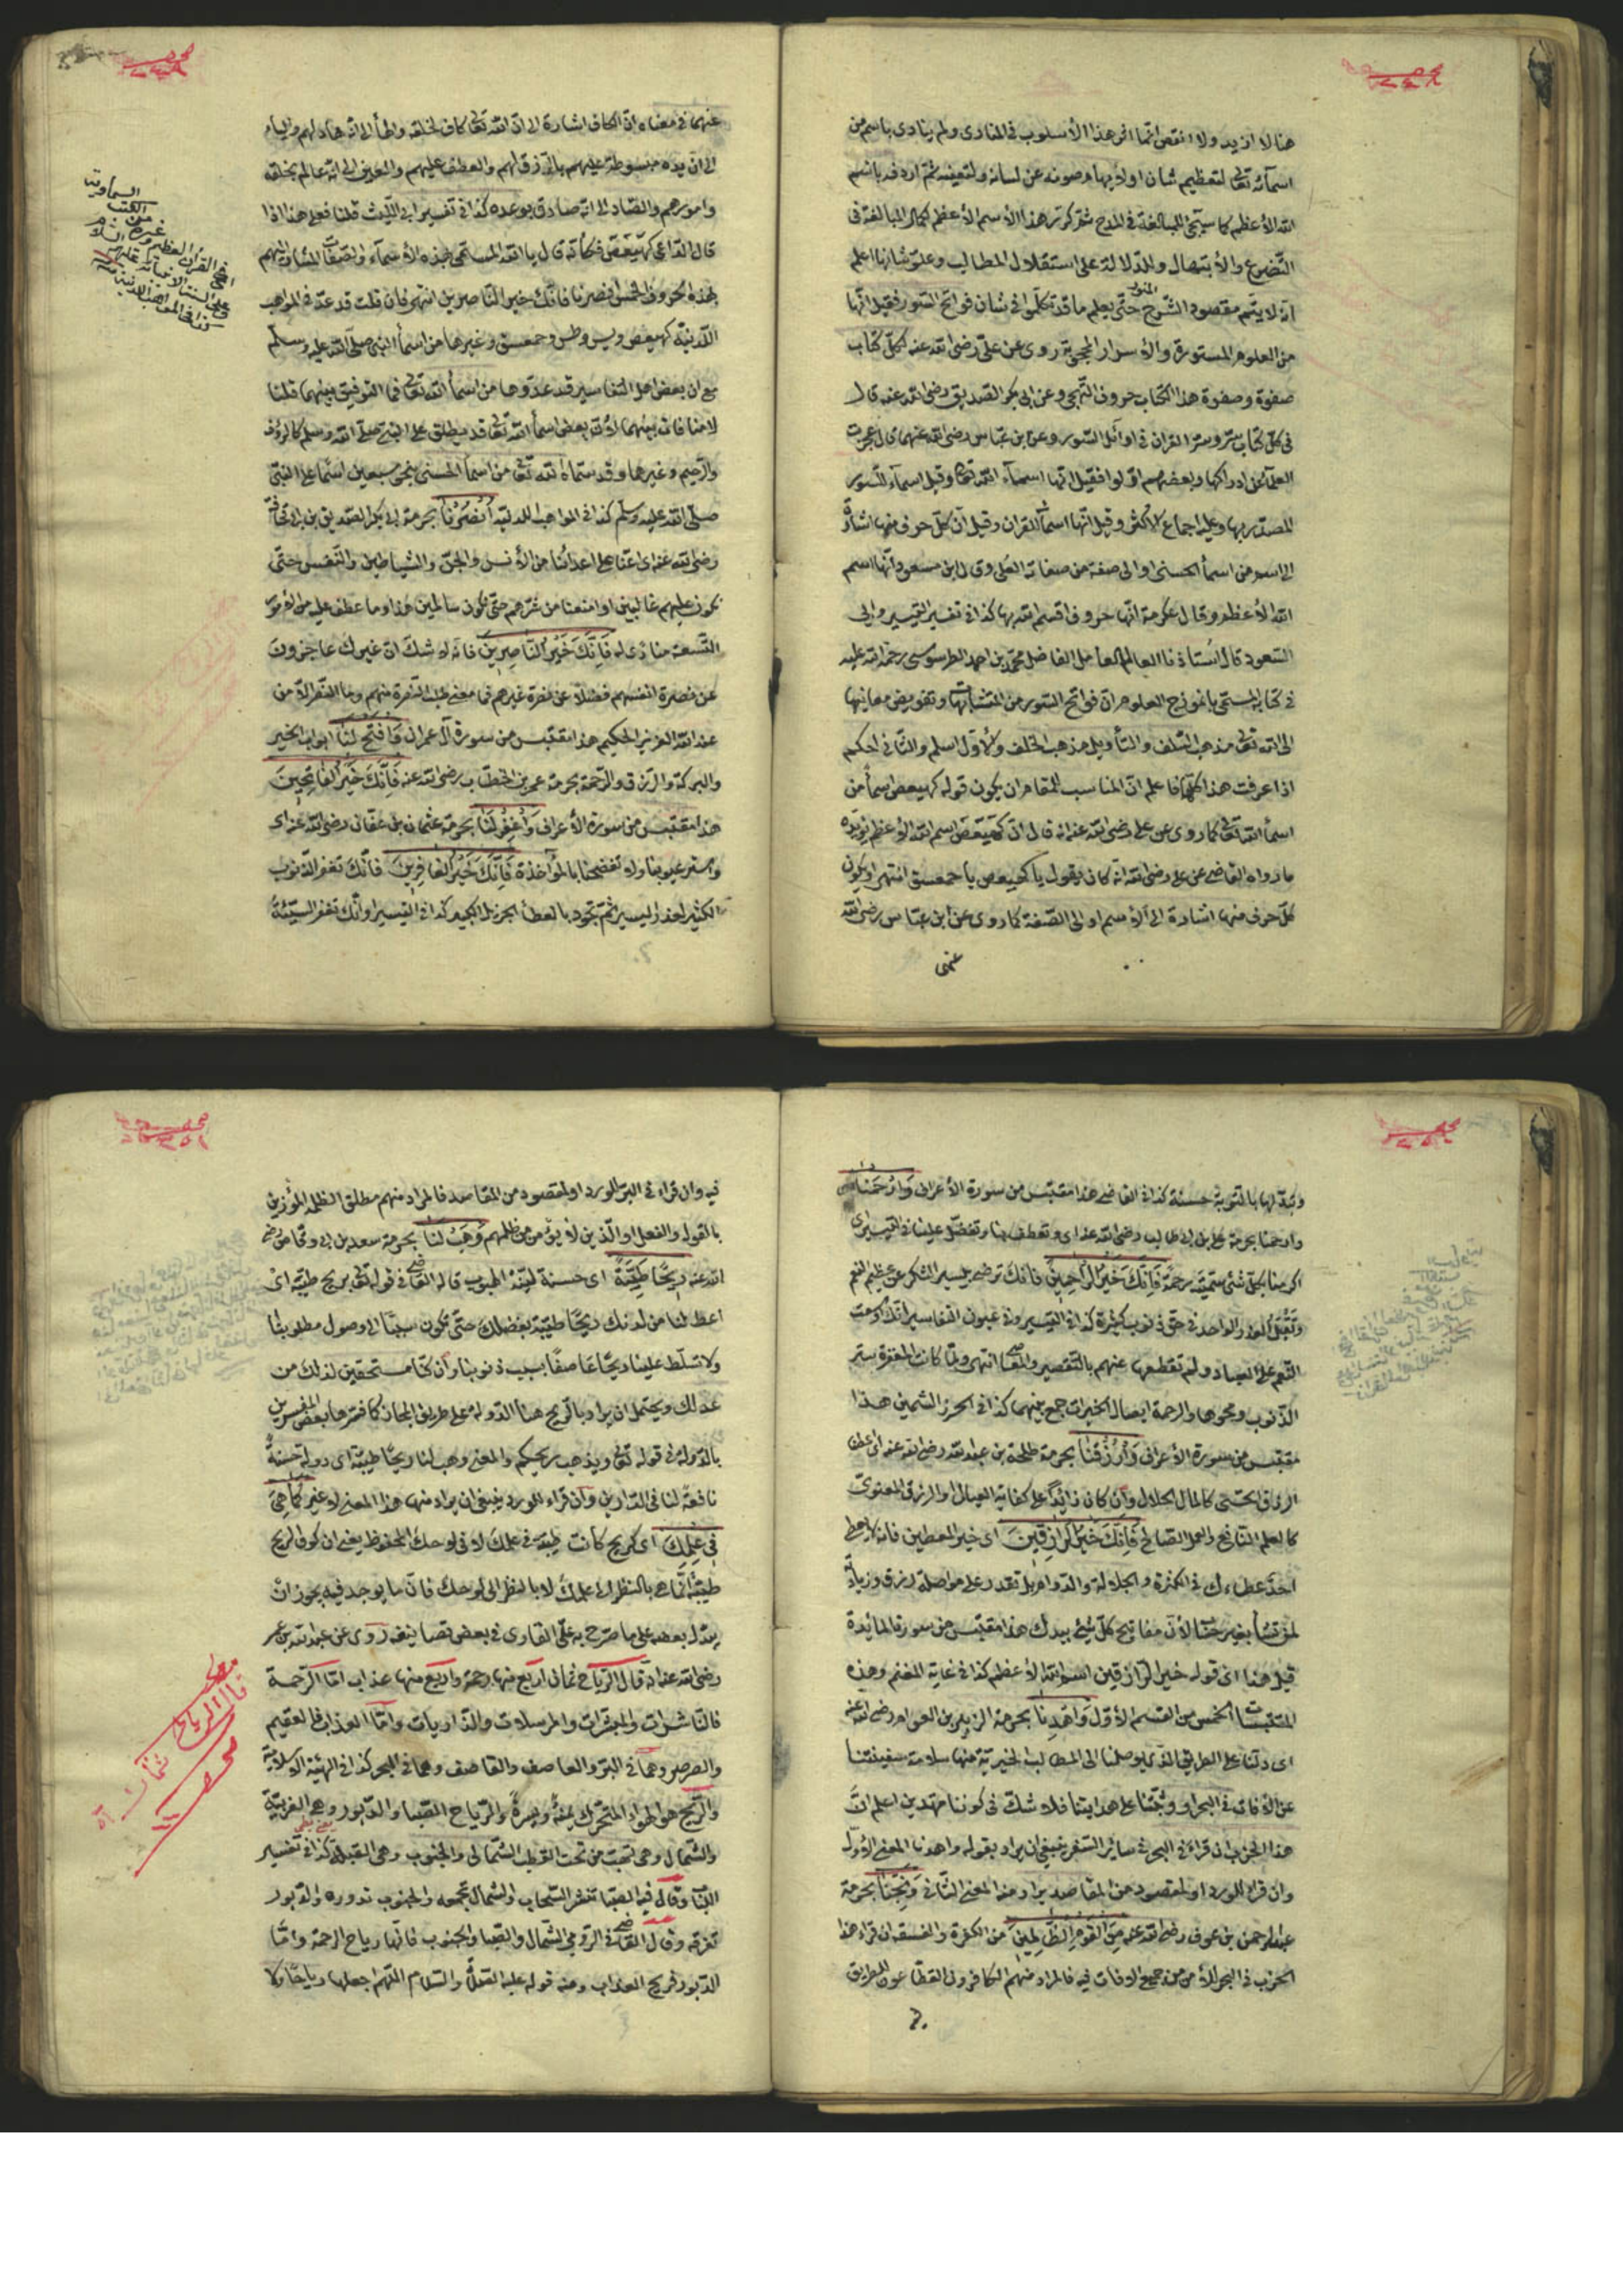 هنا لا ازيد ولا انقص انما اثر هذا الأسلوب في المنادى ولم يناد باسم من
اسمآئه تعالى لتعظيم شان اولا بهام صونه عن لسانه ولتعينه ثم اردفه باسم
الله الأعظم كما سيجئ للمبالغة في المدح ثم كرر هذا الأسم الأعظم لكمال المبالغة في
التضرع والأبتهال والدلالة على استقلال المطالب وعلو شانها اعلم
انه لا يتم مقصود الشروح حتى يعلم ما قد تكلموا في شان فواتح السور فقيل انها
من العلوم المستورة والأسرار المحجوبة روى عن علي رضى الله عنه لكل كتاب
صفوة وصفوة هذا الكتاب حروف التهجى وعن ابى بكر الصديق رضى الله عنه قال
في كل كتاب سر وسر القران في اوائل السور وعن ابن عباس رضى الله عنهما قال عجزت
العلمآء عن ادراكها وبعضهم اولوا فقيل انها اسمآء الله تعالى وقيل اسمآء السور
المصدر بها وعليه اجماع الأكثر وقيل انها اسمآء القران وقيل ان كل حرف منها اشارة
الى اسم من اسمآء الحسنى او الى صفة من صفاته العلى وقال ابن مسعود انها اسم
الله الأعظم وقال عكرمة انها حروف اقسم الله بها كذا في تفسير التيسير وابى
السعود قال استاذنا العالم العامل الفاضل محمد بن احمد الطرسوسى رحمة الله عليه
في كتابه المسمى بانموذج العلوم ان فواتح السور من المتشابهات وتفويض معانيها
الى الله تعالى مذهب السلف والتأويل مذهب الخلف والأول اسلم والثانى احكم
اذا عرفت هذا كلها فاعلم ان المناسب للمقام ان يكون قوله كهيعص اسمآ من
اسمآء الله تعالى كما روى عن على رضى الله عنه انه قال ان كهيعص اسم الله الأعظم يؤيده
ما رواه القاضى عن على رضى الله انه كان يقول يا كهيعص يا حمعسق انتهى او يكون
كل حرف منها اشارة الى الأسم او الى الصفة كما روى عن ابن عباس رضى الله
عنهما
عنهما في معناه ان الكاف اشارة الى ان الله تعالى كاف لخلقه والهآ الى انه هاد لهم واليآء
الى ان يده مبسوطة عليهم بالرزق لهم والعطف عليهم والعين الى انه عالم بخلقه
وامورهم والصاد الى انه صادق بوعده كذا في تفسير ابى الليث قلنا فعلى هذا اذا
قال الداعى كهيعص فكأنه قال يا الله المسمى بهذه الأسمآء والصفات المشار اليهم
بهذه الحروف الخمس انصرنا فانك خير الناصرين انتهى فان قلت قد عد في المواهب
اللدنية كهيعص ويس وطس وحمعسق وغيرها من اسمآء النبى صلى الله عليه وسلم
مع ان بعض اهل التفاسير قد عدوها من اسمآء الله تعالى فما التوفيق بينهما قلنا
لا منافات بينهما لأنه بعض اسمآء الله تعالى قد يطلق على النبى صلى الله وسلم كالرؤف
والرحيم وغيرها وقد سماه لله تعالى من اسمآء الحسنى بنحو سبعين اسما على النبى
صلى الله عليه وسلم كذا في المواهب اللدنية أنصرنا بحرمة ابى بكر الصديق بن ابى قحافة
رضى الله عنه اى اعنا على اعدائنا من الأنس والجن والشياطين والنفس حتى
نكون عليهم غالبين او امنعنا من شرهم حتى نكون سالمين هذا وما عطف عليه من الأمور
التسعة منادى له فإنك خير الناصرين فانه لا شك ان غيرك عاجزون
عن نصرة انفسهم فضلا عن نصرة غيرهم في معنى طلب النصرة منهم وما النصر الا من
عند الله العزيز الحكيم هذا مقتبس من سورة آل عمران وافتح لنا ابواب الخير
والبركة والرزق والرحمة بحرمة عمر بن الخطاب رضى الله عنه فإنك خير الفاتحين
هذا مقتبس من سورة الأعراف واغفر لنا بحرمة عثمان بن عفان رضى الله عنه اى
واستر عيوبنا ولا تفضحنا بالمؤاخذة فإنك خير الغافرين فانك تغفر الذنوب
الكثير لعذر اليسير ثم تجود بالعطآء الجزيل الكبير كذا في التيسير او انك تغفر السيئة
السماوية
من الكتب
وغيره
في القران العظيم
على السنة الانبيائه عليهم السلام
كذا في المواهب اللدنية
وتبدلها بالتوبة حسنة كذا في القاضى هذا مقتبس من سورة الأعراف وارحمنا
وارحمنا بحرمة على بن ابى طالب رضى الله عنه اى وتعطف بنا وتفضل علينا في التيسير اى
اكرمنا بكل شئ سميته رحمة فإنك خير الراحمين فانك ترضى بيسير الشكر عن عظيم النعم
وتقبل العذر الواحد في حق ذنوب كثيرة كذا في التيسير وفي عيون التفاسير انك ادمت
النعم على العباد ولم تقطعها عنهم بالتقصير والمعاصى انتهى ولما كانت المغفرة ستر
الذنوب ومحوها والرحمة ايصال الخيرات جمع بينهما كذا في الحرز الثمين هذا
مقتبس من سورة الأعراف وارزقنا بحرمة طلحة بن عبد الله رضى الله عنه اى اعطنا
ارزاق الحسى كالمال الحلال وان كان زائدا على كفاية العيال والرزق المعنوى
كالعلم النافع والعمل الصالح فإنك خير الرازقين اى خير المعطين فانه لا يعطى
احد عطاءك في الكثرة والجلالة والدوام بل تقدر على مواصلة رزق وزيادة
لمن تشآء بغير حساب لأن مفاتيح كل شئ بيدك هذا مقتبس من سورة المائدة
قيل هنا اى قوله خير الرازقين اسم الله الأعظم كذا في غاية المغنم وهذه
المقتبسات الخمس من القسم الأول واهدنا بحرمة الزبير بن العوام رضى الله عنه
اى دلنا على الطريق الذى يوصلنا الى المطالب الخيرية منها سلامة سفينتنا
عن الأفات في البحر او وثبتنا على هدايتنا فلا شك في كوننا مهتدين اعلم ان
هذا الحزب ان قراء في البحر في سائر السفر فينبغى ان يراد بقوله واهدنا المعنى الأول
وان قراء للورد او لمقصود من المقاصد يراد منه المعنى الثانى ونجنا بحرمة
عبد الرحمن بن عوف رضى الله عنه من القوم الظالمين من الكفرة والفسقة ان قراء هذا
الحزب في البحر للأمن من جميع الافات فيه فالمراد منهم الكافرون القطاعون للطريق
فيه وان قراء في البر للورد او لمقصود من المقاصد فالمراد منهم مطلق الظلمة المؤذين
بالقول والفعل او الذين لا يؤمن من ظلمهم وهب لنا بحرمة سعد بن ابى وقاص رضى
الله عنه ريحا طيبة اى حسنة لينة الهبوب قاله القاضى في قوله تعالى بريح طيبة اى
اعط لنا من لدنك ريحا طيبة بفضلك حتى تكون سببا الى وصول مطلوبنا
ولا تسلط علينا ريحا عاصفا بسبب ذنوبنا وان كنا مستحقين لذلك من
عدلك ويحتمل ان يراد بالريح هنا الدولة على طريق المجاز كما فسرها بعض المفسرين
بالدولة في قوله تعالى ويذهب ريحكم والمعنى وهب لنا ريحا طيبة اى دولة حسنة
نافعة لنا في الدارين وان قراء للورد ينبغى ان يراد منها هذا المعنى لا غير كما هى
في علمك اى كريح كانت طيبة في علمك لا في لوحك المحفوظ يعنى ان كون الريح
طيبة انما هى بالنظر الى علمك لا بالنظر الى لوحك فان ما يوجد فيه يجوز ان
يبدل بعضه على ما صرح به على القارى في بعض تصانيفه روى عن عبد الله بن عمر
رضى الله عنه انه قال الرياح ثمان اربع منها رحمة واربع منها عذاب اما الرحمة
فالناشرات والمبشرات والمرسلات والذاريات واما العذاب فالعقيم
والصرصر وهما في البر والعاصف والقاصف وهما في البحر كذا في الهيئة الاسلامية
والريح هو الهواء المتحرك يمنة ويسرة والرياح الصبا والدبور وهى الغربية
والشمال وهى تهب من تحت القطب الشمالى والجنوب وهى القبلة كذا في تفسير
اللباب وقال فيه الصبا تنشر السحاب والشمال تجمعه والجنوب تدوره والدبور
تفرقه وقال القاضى في الروم الشمال والصبا والجنوب فانها رياح الرحمة واما
الدبور فريح العذاب ومنه قوله عليه الصلاة والسلام اللهم اجعلها رياحا ولا
مطلب
قال الرياح ثمان